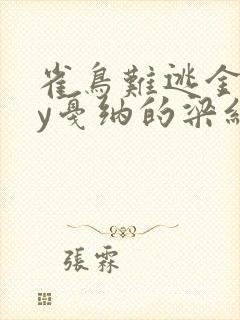 雀鳥難逃金
y戛纳的梁紅
張霖